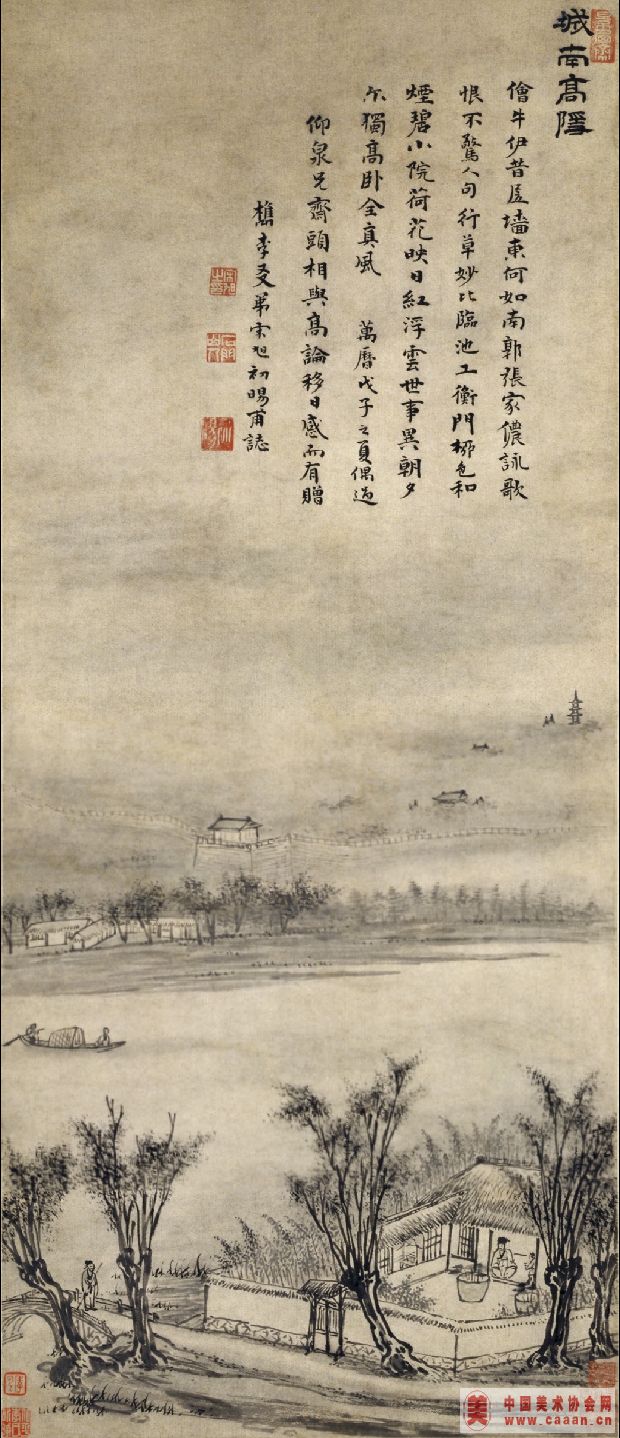 城南高隱
儈牛伊昔居墻東何如南郭張家儂詠歌
恨不驚人句行草妙比臨池工衡門柳色和
煙碧小院荷花映日紅浮雲世事異朝夕
尔獨高卧全真風 萬曆戊子之夏偶過
仰泉兄齋頭相與高論移日感而有贈
檇李友弟宋旭初暘甫誌
美 中国美术协会网
www.caaan.cn